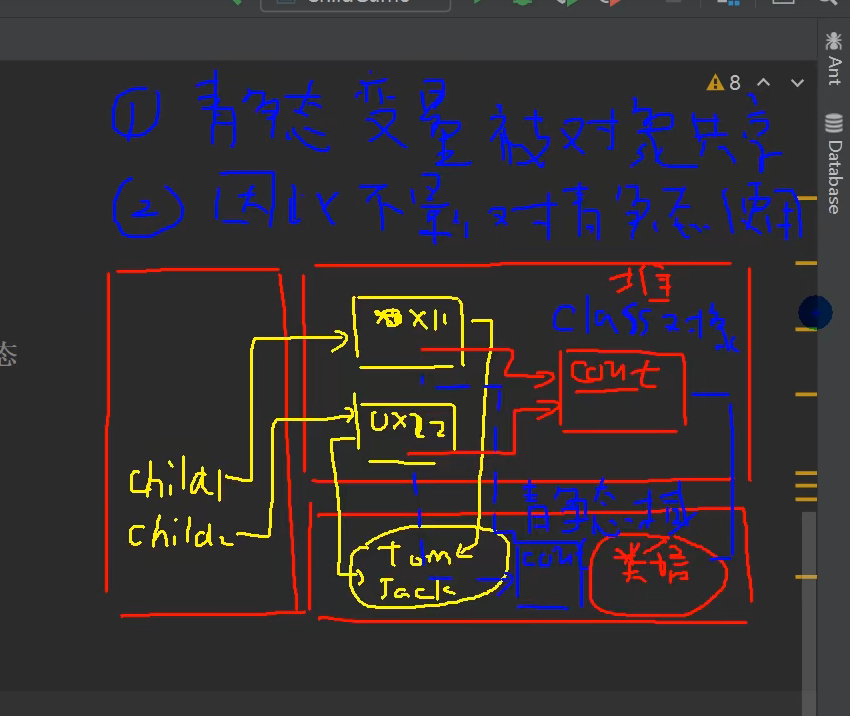 ChildGame
8
Ant
Database
① 静态变量被对象共享
② 因此不影响对静态使用
堆
Class对象
0X11
count
0X22
child1
child2
静态域
Tom
Jack
coun
类信息
态